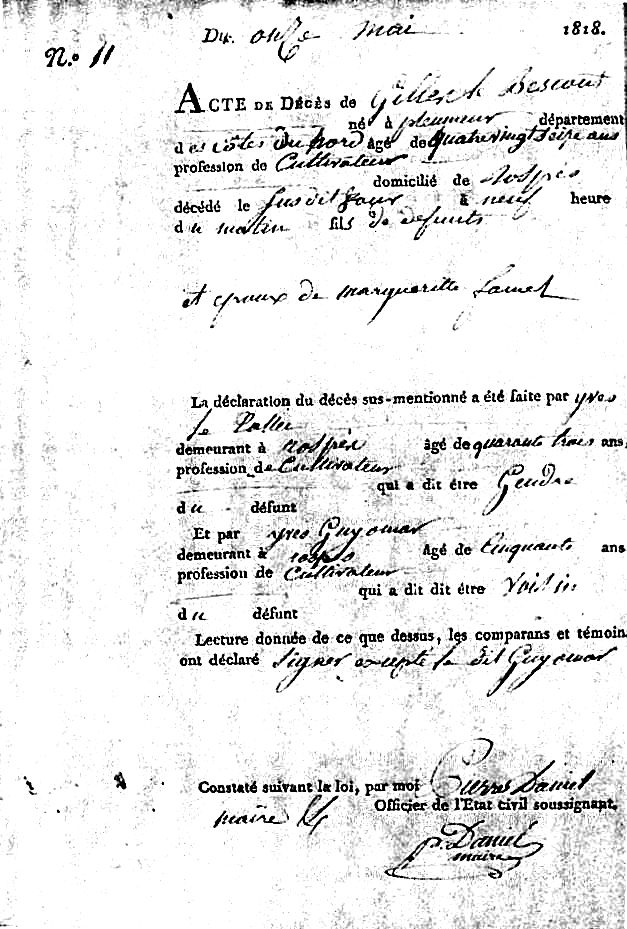 Du onze mai 1818.
N.º 11
ACTE DE Décès de Gilles le Bescont
né à pleumeur département
des côtes du nord âgé de quatrevingt seize ans
profession de Cultivateur
domicilié de Rospès
décédé le susdit jour à neuf heure
du matin fils de defunts
et epoux de marguerite
La déclaration du décès sus-mentionné a été faite par yves
le
demeurant à Rospès âgé de quarante trois ans,
profession de Cultivateur
qui a dit être Gendre
du défunt
Et par yves Guyomar
demeurant à rospès âgé de Cinquante ans
profession de Cultivateur
qui a dit dit être Voisin
du défunt
Lecture donnée de ce que dessus, les comparans et témoin
ont déclaré signer excepté le dit Guyomar
Constaté suivant la loi, par moi Pierre Daniel
maire Officier de l'Etat civil soussignant.
P. Daniel
maire